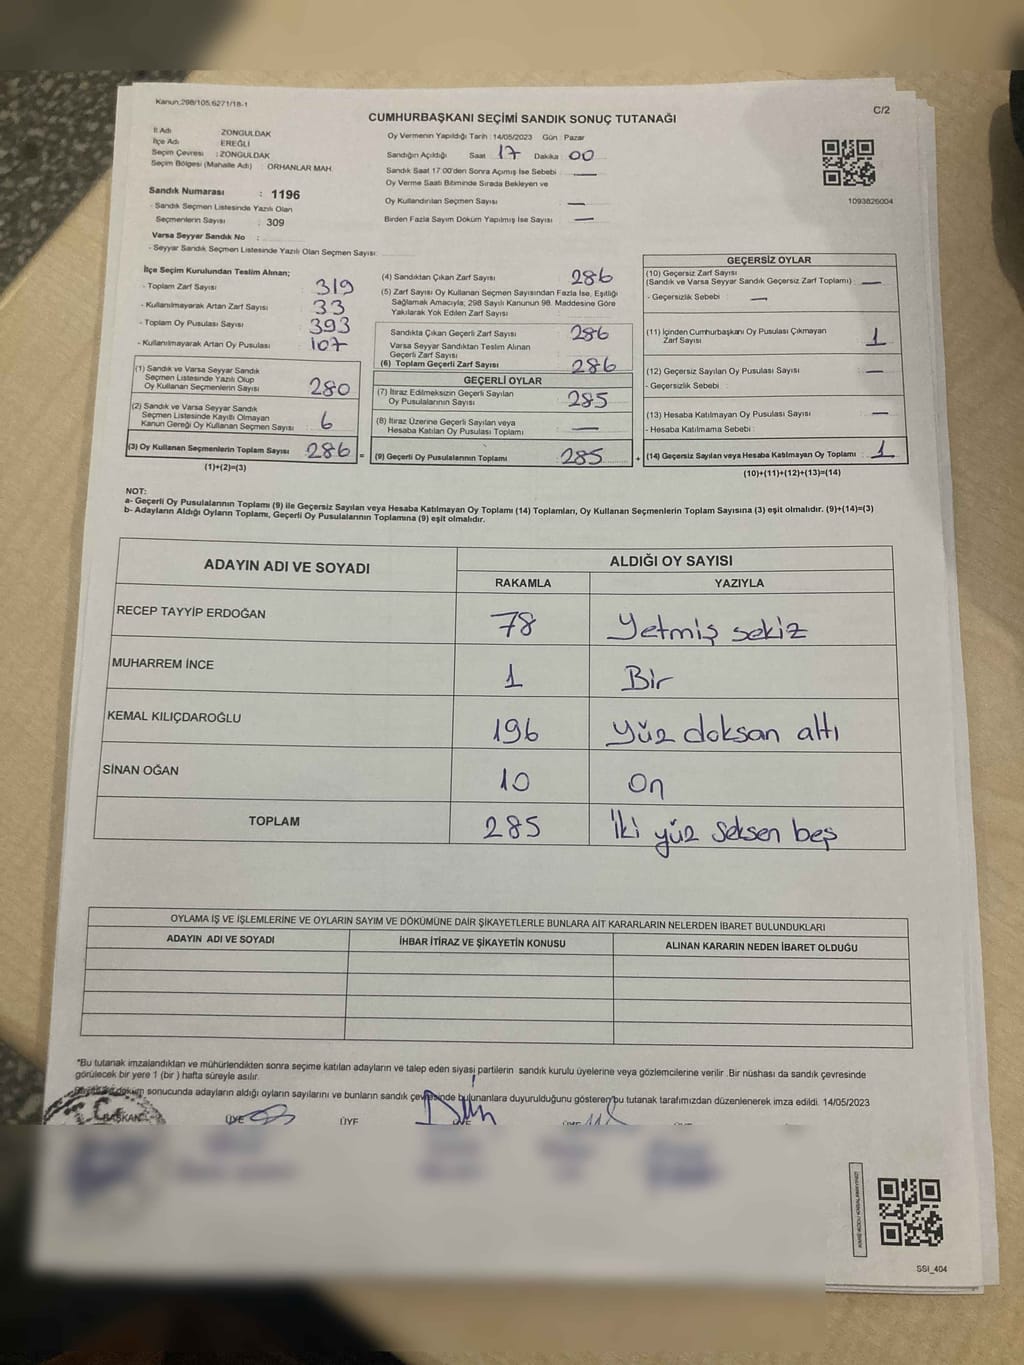 Kanun:298/105,6271/18-1
C/2
CUMHURBAŞKANI SEÇİMİ SANDIK SONUÇ TUTANAĞI
İl Adı ZONGULDAK
İlçe Adı EREĞLİ
Seçim Çevresi : ZONGULDAK
Seçim Bölgesi (Mahalle Adı) : ORHANLAR MAH.
Sandık Numarası : 1196
- Sandık Seçmen Listesinde Yazılı Olan
Seçmenlerin Sayısı : 309
Varsa Seyyar Sandık No :
- Seyyar Sandık Seçmen Listesinde Yazılı Olan Seçmen Sayısı:
Oy Vermenin Yapıldığı Tarih : 14/05/2023 Gün : Pazar
Sandığın Açıldığı Saat 17 Dakika 00
Sandık Saat 17:00'den Sonra Açımış İse Sebebi : —
Oy Verme Saati Bitiminde Sırada Bekleyen ve
Oy Kullandırılan Seçmen Sayısı : —
Birden Fazla Sayım Döküm Yapılmış İse Sayısı : —
1093826004
İlçe Seçim Kurulundan Teslim Alınan;
- Toplam Zarf Sayısı : 319
- Kullanılmayarak Artan Zarf Sayısı : 33
- Toplam Oy Pusulası Sayısı : 393
- Kullanılmayarak Artan Oy Pusulası : 107
(1) Sandık ve Varsa Seyyar Sandık
Seçmen Listesinde Yazılı Olup
Oy Kullanan Seçmenlerin Sayısı : 280
(2) Sandık ve Varsa Seyyar Sandık
Seçmen Listesinde Kayıtlı Olmayan
Kanun Gereği Oy Kullanan Seçmen Sayısı : 6
(3) Oy Kullanan Seçmenlerin Toplam Sayısı : 286 =
(1)+(2)=(3)
(4) Sandıktan Çıkan Zarf Sayısı : 286
(5) Zarf Sayısı Oy Kullanan Seçmen Sayısından Fazla İse, Eşitliği
Sağlamak Amacıyla; 298 Sayılı Kanunun 98. Maddesine Göre
Yakılarak Yok Edilen Zarf Sayısı :
Sandıkta Çıkan Geçerli Zarf Sayısı : 286
Varsa Seyyar Sandıktan Teslim Alınan
Geçerli Zarf Sayısı :
(6) Toplam Geçerli Zarf Sayısı : 286
GEÇERLİ OYLAR
(7) İtiraz Edilmeksizin Geçerli Sayılan
Oy Pusulalarının Sayısı : 285
(8) İtiraz Üzerine Geçerli Sayılan veya
Hesaba Katılan Oy Pusulası Toplamı : —
(9) Geçerli Oy Pusulalarının Toplamı : 285 +
GEÇERSİZ OYLAR
(10) Geçersiz Zarf Sayısı
(Sandık ve Varsa Seyyar Sandık Geçersiz Zarf Toplamı) : —
- Geçersizlik Sebebi : —
(11) İçinden Cumhurbaşkanı Oy Pusulası Çıkmayan
Zarf Sayısı : 1
(12) Geçersiz Sayılan Oy Pusulası Sayısı : —
- Geçersizlik Sebebi :
(13) Hesaba Katılmayan Oy Pusulası Sayısı : —
- Hesaba Katılmama Sebebi :
(14) Geçersiz Sayılan veya Hesaba Katılmayan Oy Toplamı : 1
(10)+(11)+(12)+(13)=(14)
NOT:
a- Geçerli Oy Pusulalarının Toplamı (9) ile Geçersiz Sayılan veya Hesaba Katılmayan Oy Toplamı (14) Toplamları, Oy Kullanan Seçmenlerin Toplam Sayısına (3) eşit olmalıdır. (9)+(14)=(3)
b- Adayların Aldığı Oyların Toplamı, Geçerli Oy Pusulalarının Toplamına (9) eşit olmalıdır.
ADAYIN ADI VE SOYADI ALDIĞI OY SAYISI
RAKAMLA YAZIYLA
RECEP TAYYİP ERDOĞAN 78 Yetmiş sekiz
MUHARREM İNCE 1 Bir
KEMAL KILIÇDAROĞLU 196 Yüz doksan altı
SİNAN OĞAN 10 On
TOPLAM 285 İki yüz seksen beş
OYLAMA İŞ VE İŞLEMLERİNE VE OYLARIN SAYIM VE DÖKÜMÜNE DAİR ŞİKAYETLERLE BUNLARA AİT KARARLARIN NELERDEN İBARET BULUNDUKLARI
ADAYIN ADI VE SOYADI İHBAR İTİRAZ VE ŞİKAYETİN KONUSU ALINAN KARARIN NEDEN İBARET OLDUĞU
*Bu tutanak imzalandıktan ve mühürlendikten sonra seçime katılan adayların ve talep eden siyasi partilerin sandık kurulu üyelerine veya gözlemcilerine verilir .Bir nüshası da sandık çevresinde
görülecek bir yere 1 (bir ) hafta süreyle asılır.
döküm sonucunda adayların aldığı oyların sayılarını ve bunların sandık çevresinde bulunanlara duyurulduğunu gösteren bu tutanak tarafımızdan düzenlenerek imza edildi. 14/05/2023
T.C.
BAŞKAN ÜYE ÜYE
SSI_404